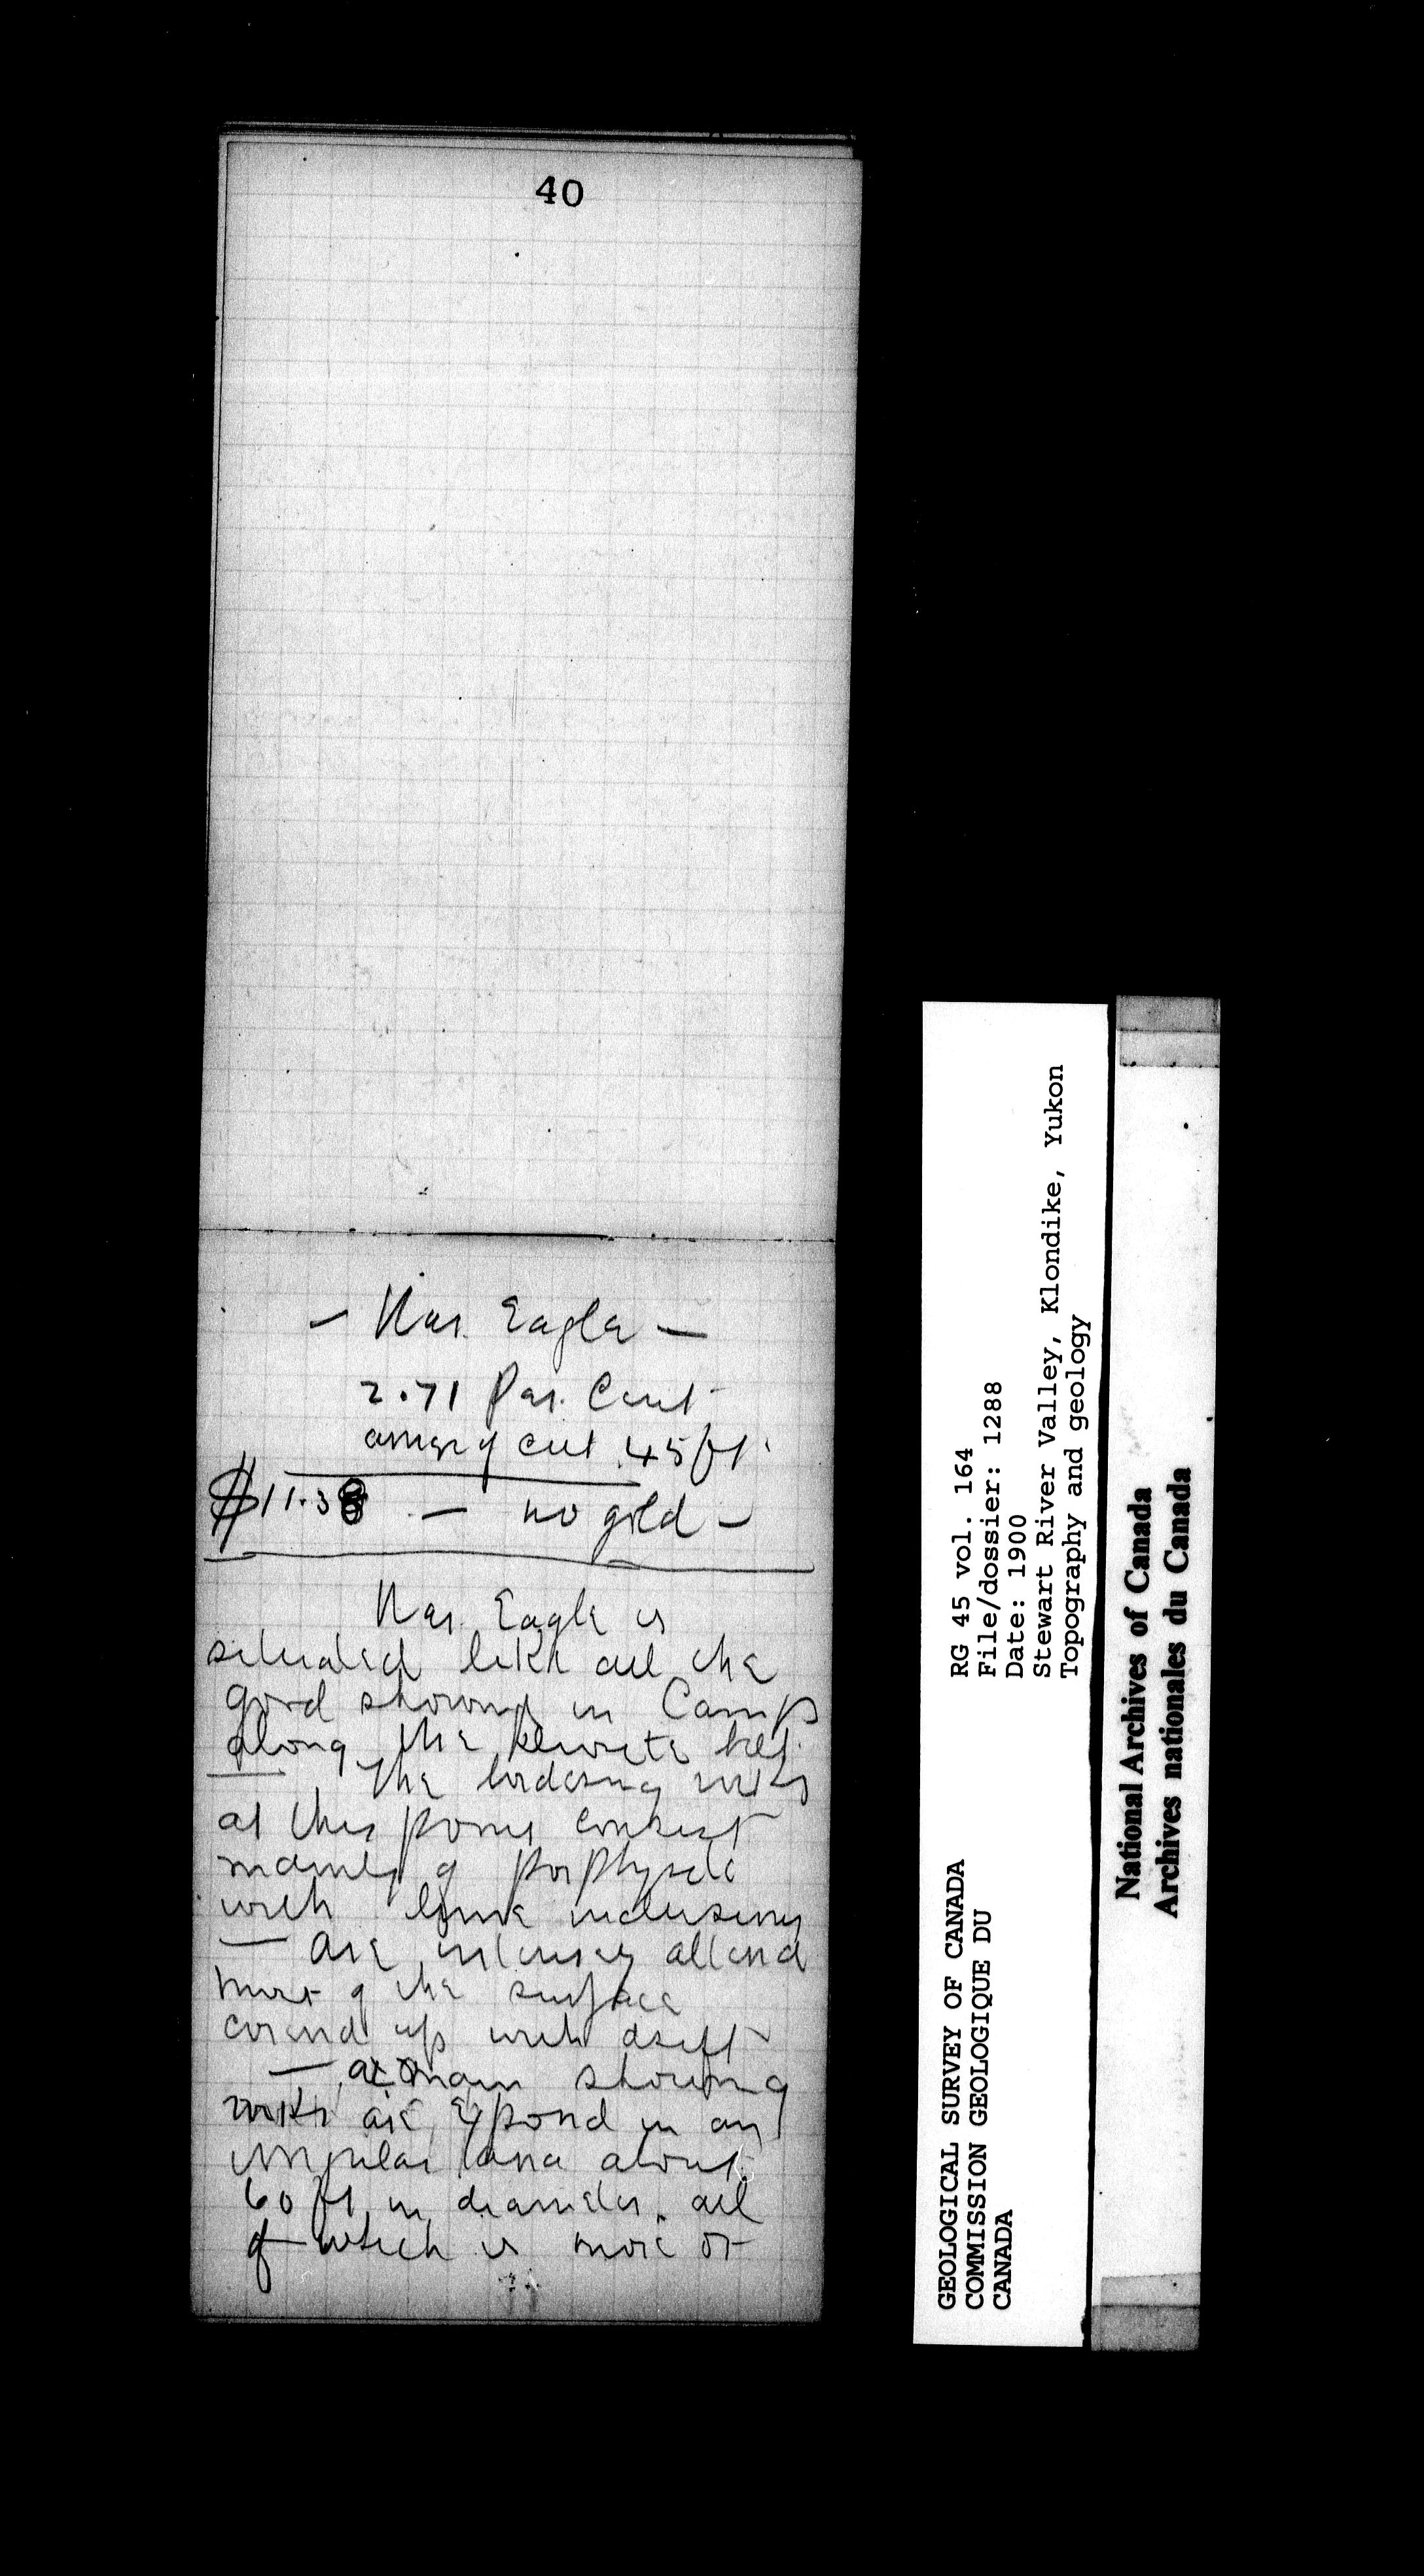 40
— War Eagle —
2.71 Per. Cent
average of cut 45 ft.
$11.38 — no gold —
War Eagle is
situated like all the
good showings in Camp
along the diorite belt.
— The bordering rocks
at this point consist
mainly of porphyrite
with lime inclusions
— are intensely altered
most of the surface
covered up with drift
— at main showing
rocks are exposed in an
irregular area about
60 ft in diameter. all
of which is more or
GEOLOGICAL SURVEY OF CANADA
COMMISSION GEOLOGIQUE DU
CANADA
RG 45 vol. 164
File/dossier: 1288
Date: 1900
Stewart River Valley, Klondike, Yukon
Topography and geology
National Archives of Canada
Archives nationales du Canada